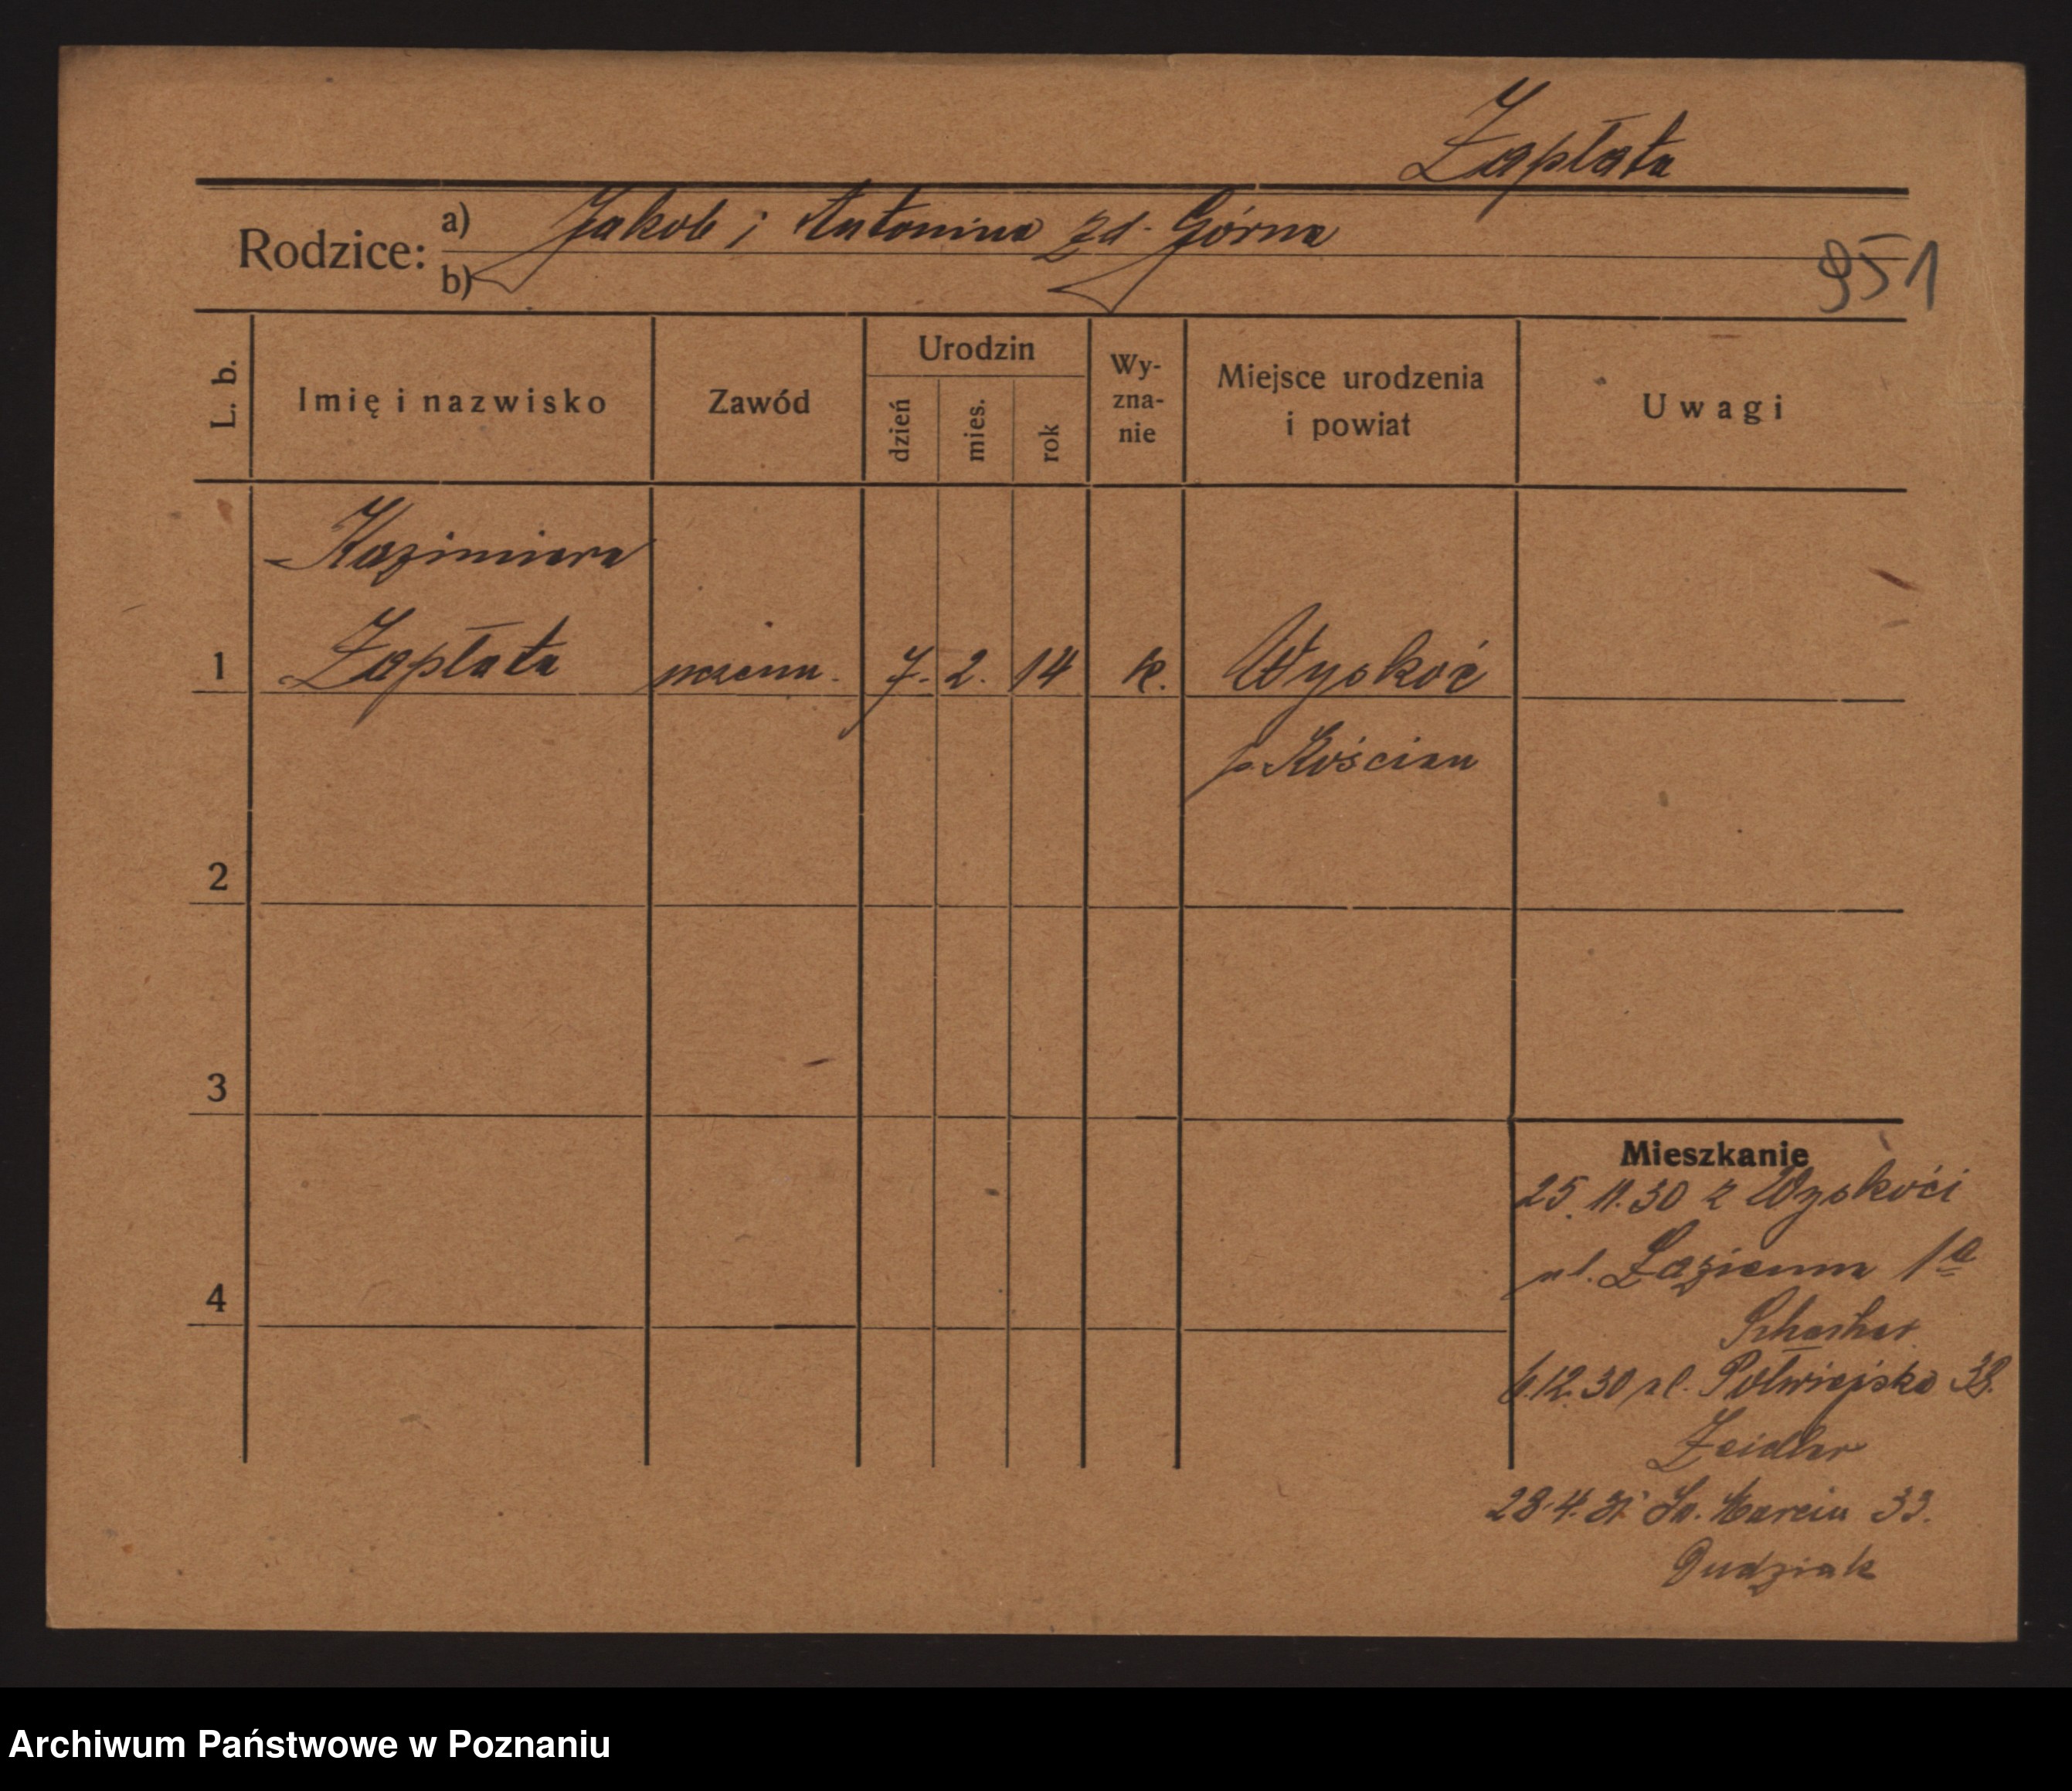 Zapłata
Rodzice: a) Jakob i Antonina zd. Górna
b)
951
L. b.
Imię i nazwisko
Zawód
Urodzin
dzień
mies.
rok
Wy-
zna-
nie
Miejsce urodzenia
i powiat
Uwagi
Kazimiera
1 Zapłata 7. 2. 14 k. Wyskoć
p. Kościan
2
3
4
Mieszkanie
25.11.30 z Wyskoći
ul. Łazienna 1a
6.12.30 ul. Półwiejska 38.
Zeidler
28.4.31 Św. Marcin 33.
Dudziak
Archiwum Państwowe w Poznaniu